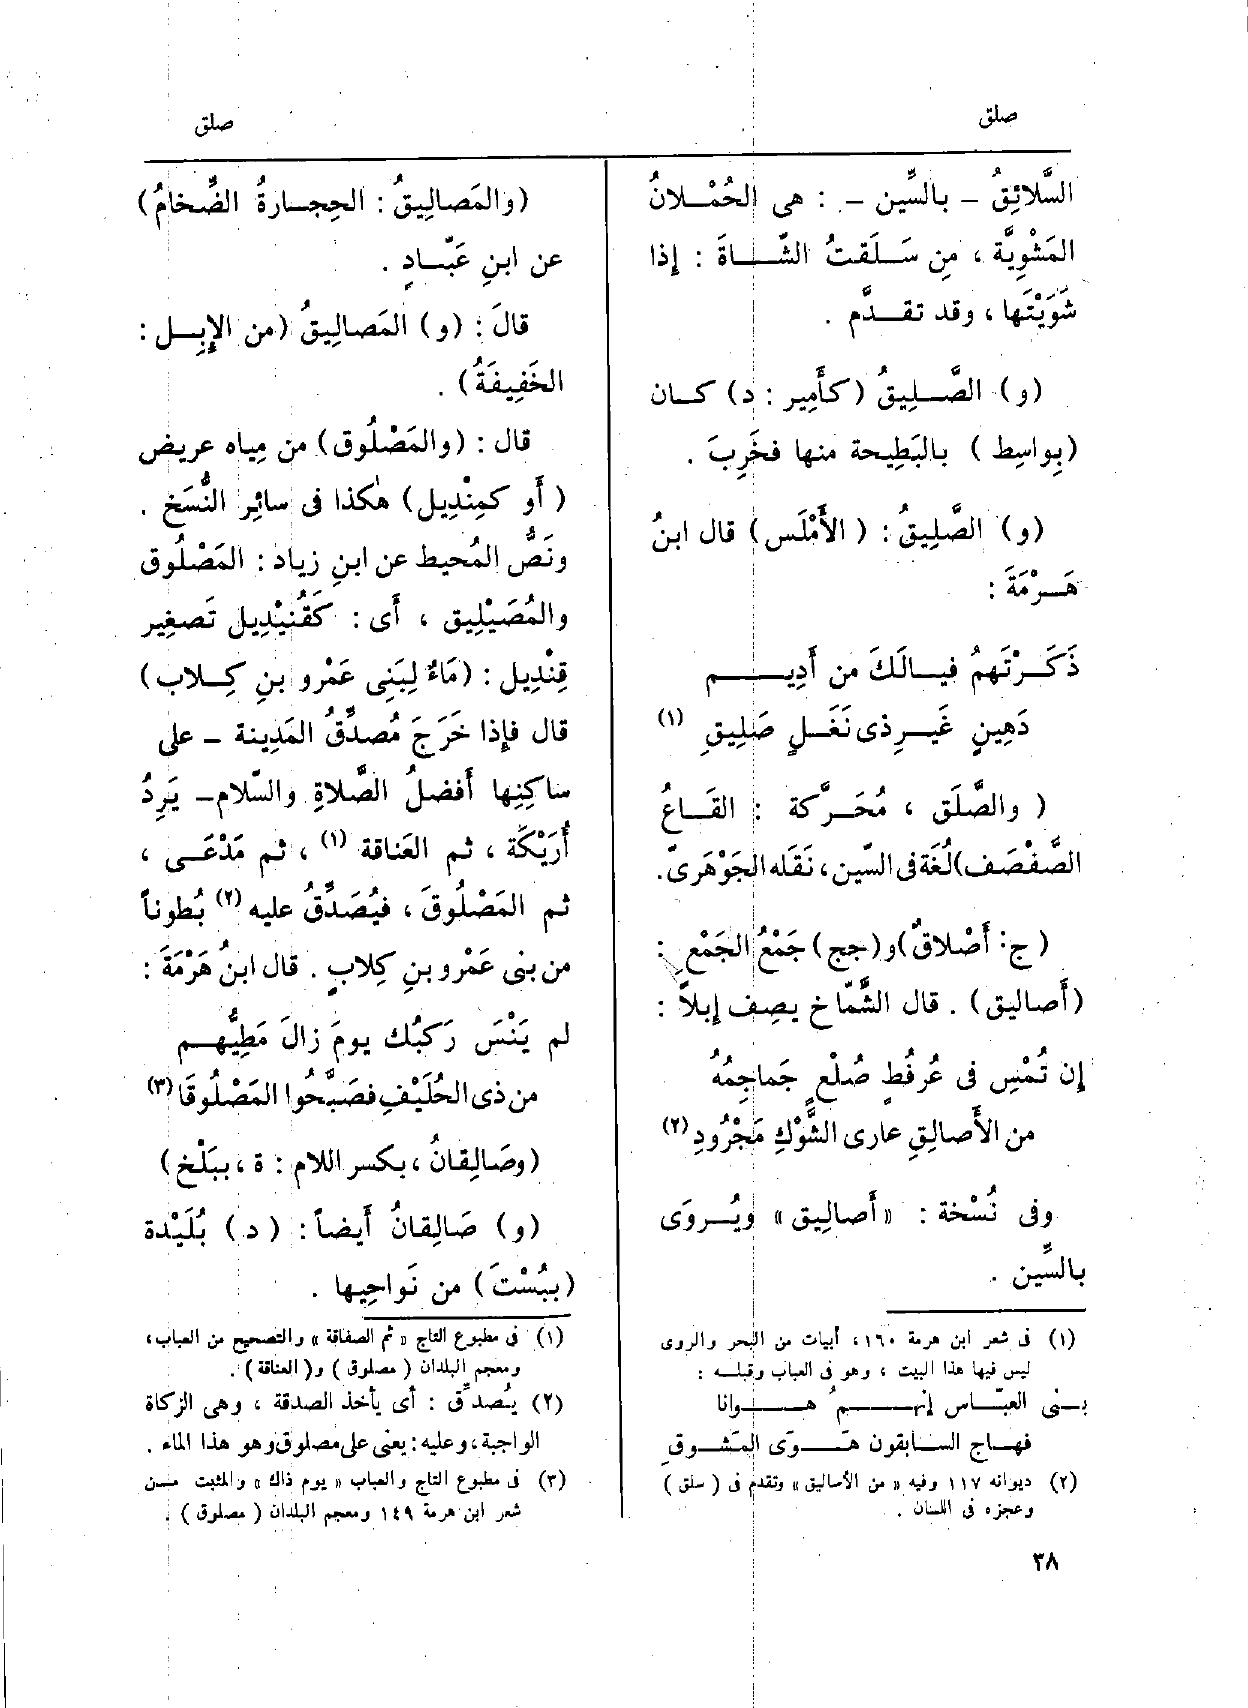 صلق
السَّلائِقُ – بالسِّين – : هى الحُمْلانُ
المَشْوِيَّة ، مِن سَلَقتُ الشَّاةَ : إذا
شَوَيْتَها ، وقد تقدَّم .
(و) الصَّلِيقُ (كأَمِير : د) كان
(بِواسِط ) بالبَطِيحة منها فخَرِبَ .
(و) الصَّلِيقُ : ( الأَمْلَس) قال ابنُ
هَرْمَةَ :
ذَكَرْتَهمُ فيالَكَ من أَدِيمٍ
دَهِينٍ غَيرِ ذى نَغَلٍ صَلِيقِ (١)
( والصَّلَق ، مُحَرَّكة : القَاعُ
الصَّفْصَف) لُغَة فى السّين ، نَقَله الجَوْهَرىّ .
( ج : أَصْلاقٌ) و (جج) جَمْعُ الجَمْعِ :
(أَصالِيق) . قال الشَّمّاخ يصِف إبلاً :
إن تُمْسِ فى عُرفُطٍ صُلْعٍ جَماجِمُهُ
من الأَصالِقِ عارى الشَّوْكِ مَجْرُودِ (٢)
وفى نُسْخة : « أَصالِيق » ويُروَى
بالسِّين .
(١) فى شعر ابن هرمة ١٦٠، أبيات من البحر والروى
ليس فيها هذا البيت ، وهو فى العباب وقبله :
بنى العبّاس إنهمُ هوانا
فهاج السابقون هَوَى المَشُوقِ
(٢) ديوانه ١١٧ وفيه « من الأساليق » وتقدم فى ( سلق )
وعجزه فى اللسان .
صلق
(والمَصالِيقُ : الحِجارةُ الضِّخامُ)
عن ابنِ عَبّادٍ .
قالَ : (و) المَصالِيقُ (من الإِبِل :
الخَفِيفَةُ) .
قال : (والمَصْلُوق) من مِياه عريض
( أَو كمِنْدِيل) هٰكذا فى سائِر النُّسَخ .
ونَصُّ المُحيط عن ابنِ زياد : المَصْلُوق
والمُصَيْلِيق ، أَى : كَقُنَيْدِيل تَصغِير
قِنْدِيل : (مَاءٌ لِبَنِى عَمْرو بنِ كِلاب)
قال فإذا خَرَجَ مُصدِّقُ المَدِينة – على
ساكِنِها أَفضلُ الصَّلاةِ والسَّلام – يَرِدُ
أُرَيْكَة ، ثم العَناقة (١) ، ثم مَدْعَى ،
ثم المَصْلُوقَ ، فيُصَدِّقُ عليه (٢) بُطوناً
من بنى عَمْرو بنِ كِلابٍ . قال ابنُ هَرْمَةَ :
لم يَنْسَ رَكبُك يومَ زالَ مَطِيُّهم
من ذى الحُلَيْفِ فصَبَّحُوا المَصْلُوقَا (٣)
(وصَالِقانُ ، بكسر اللام : ة ، ببَلْخ)
(و) صَالِقانُ أَيضاً : ( د ) بُلَيْدة
(بِبُسْتَ) من نَواحِيها .
(١) فى مطبوع التاج « ثم الصفاقة » والتصحيح من العباب،
ومعجم البلدان ( مصلوق ) و( العناقة ) .
(٢) يُصدِّق : أى يأخذ الصدقة ، وهى الزكاة
الواجبة ، وعليه : يعنى على مصلوق وهو هذا الماء .
(٣) فى مطبوع التاج والعباب « يوم ذاك » والمثبت من
شعر ابن هرمة ١٤٩ ومعجم البلدان ( مصلوق ) .
٣٨